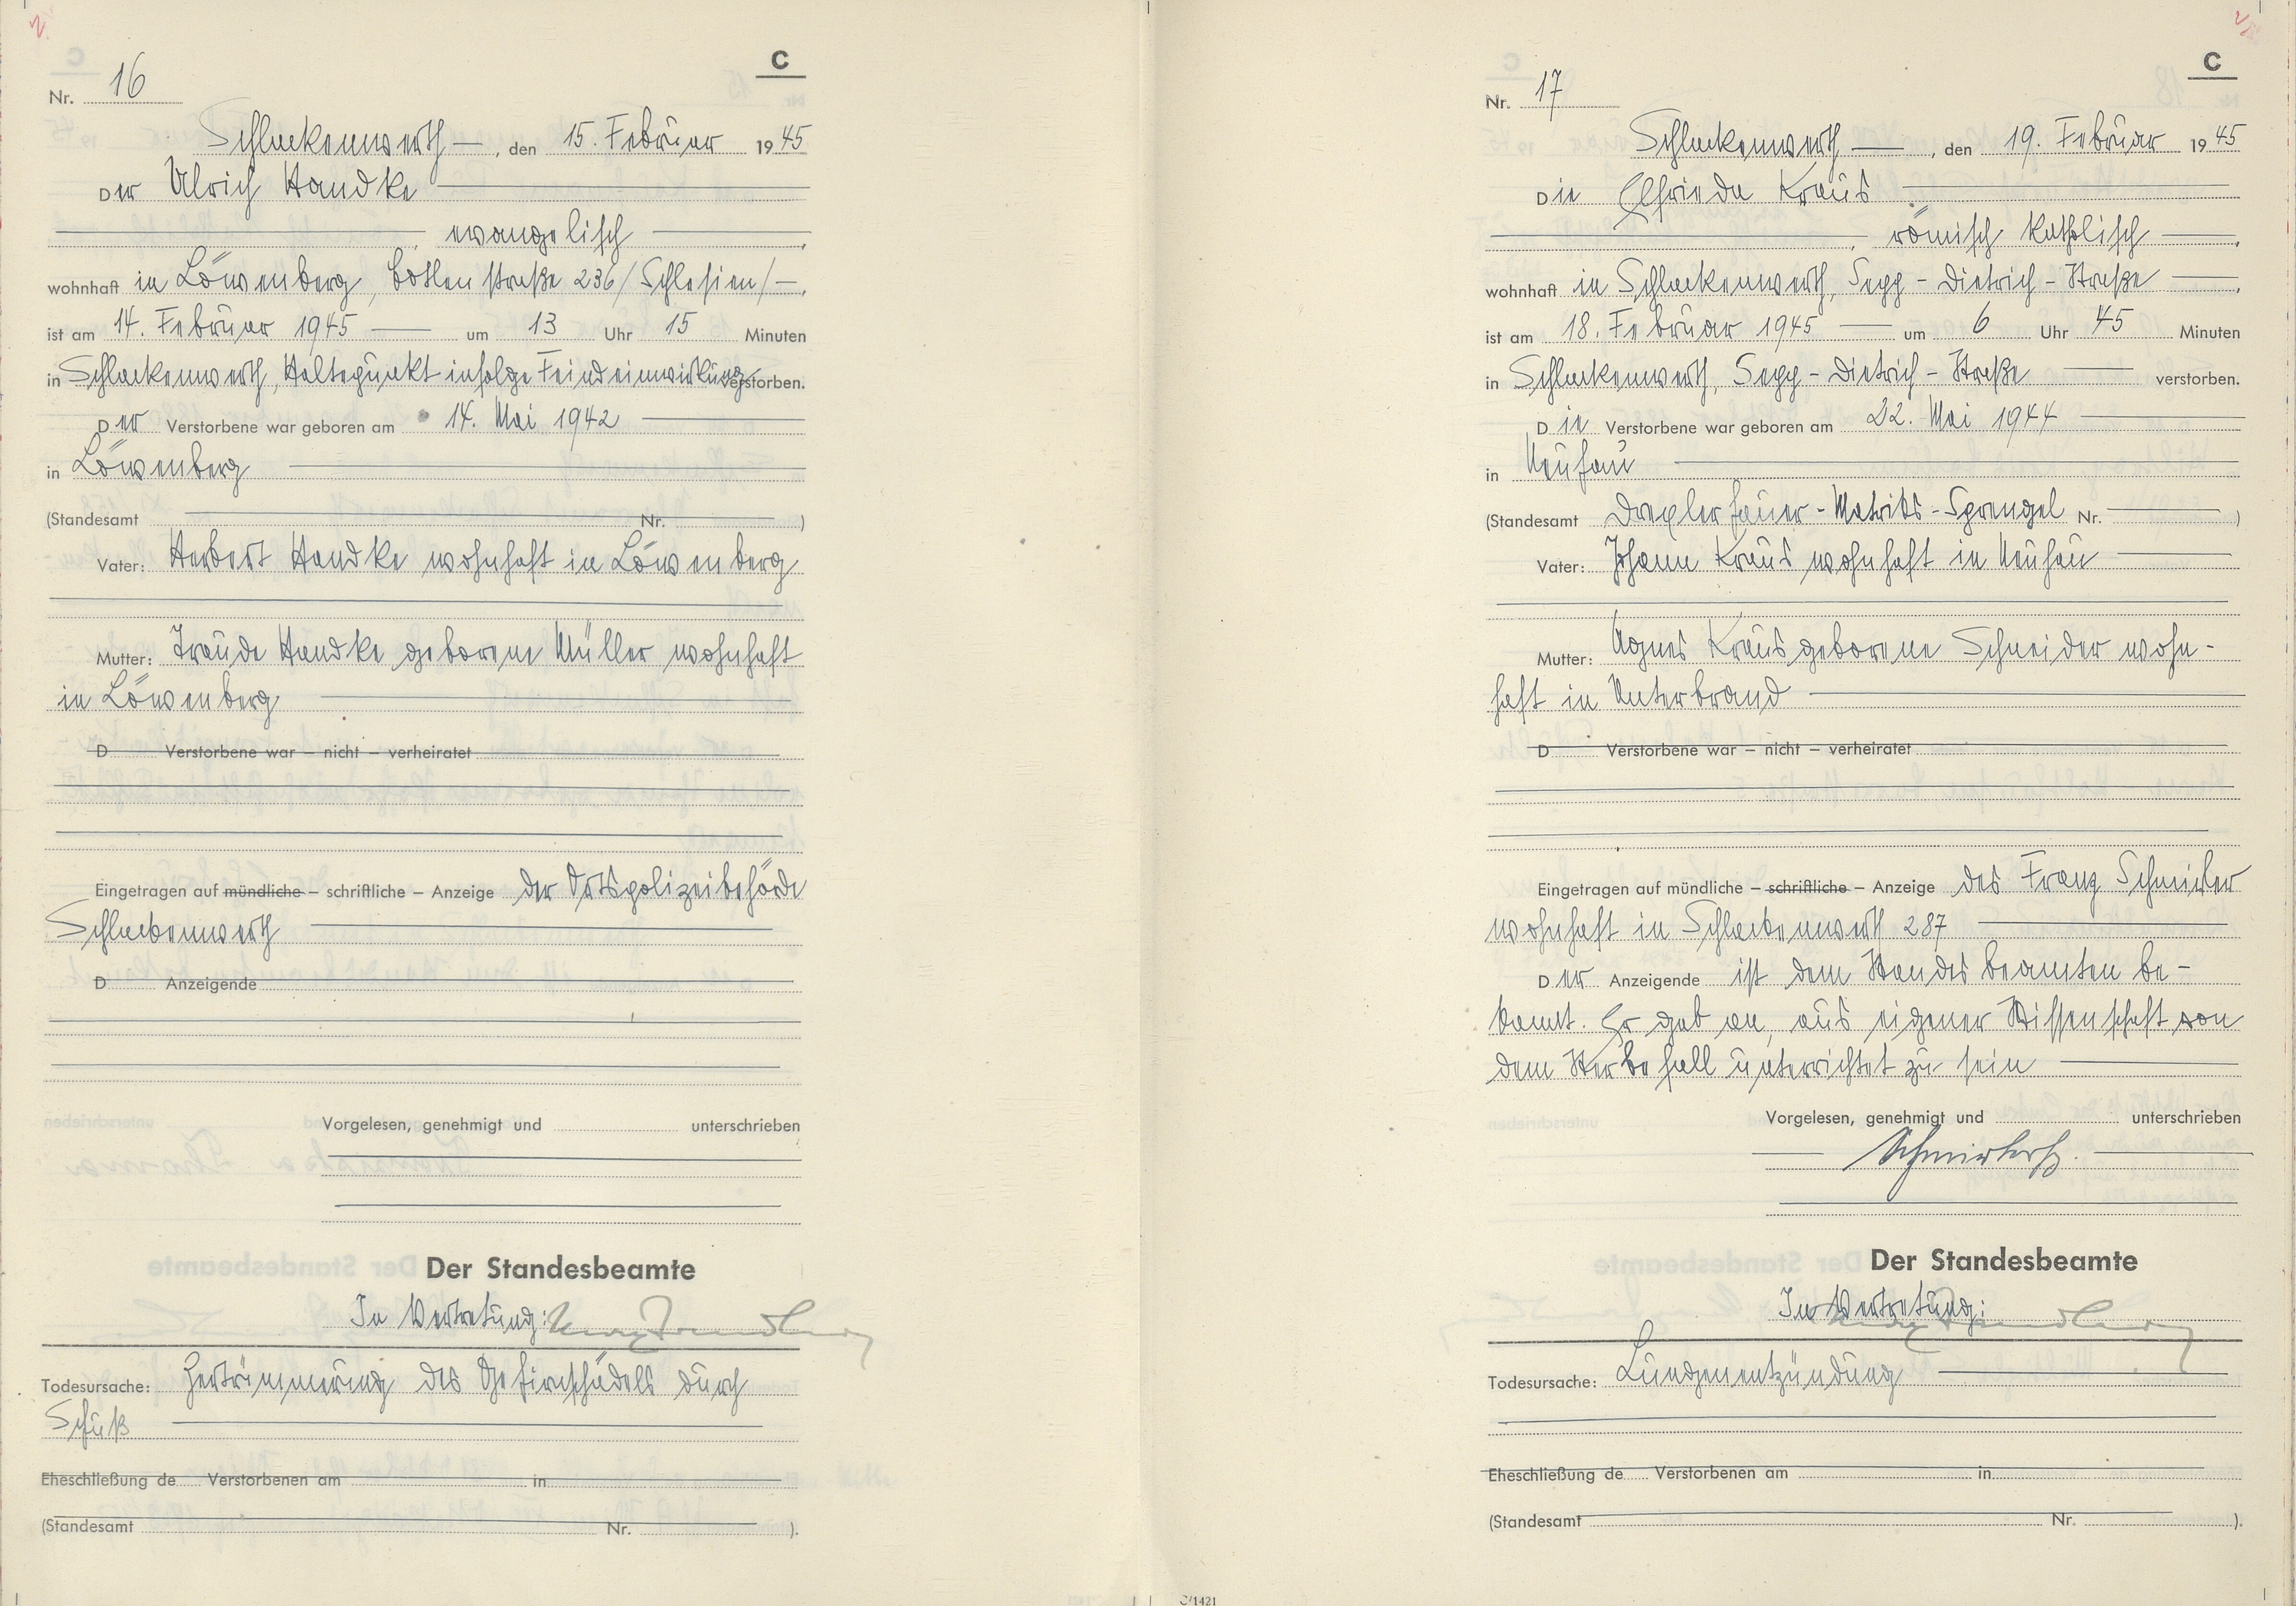 C
Nr. 16
Schlackenwerth, den 15. Februar 1945
Der Ulrich Handke
evangelisch,
wohnhaft in Löwenberg, straße 236 /Schlesien/,
ist am 14. Februar 1945 um 13 Uhr 15 Minuten
in Schlackenwerth, Haltepunkt infolge Feindeinwirkung verstorben.
Der Verstorbene war geboren am 14. Mai 1942
in Löwenberg
(Standesamt Nr. )
Vater: Herbert Handke wohnhaft in Löwenberg
Mutter: Traude Handke geborene Müller wohnhaft
in Löwenberg
D Verstorbene war – nicht – verheiratet
Eingetragen auf mündliche – schriftliche – Anzeige der Ortspolizeibehörde
Schlackenwerth
D Anzeigende
Vorgelesen, genehmigt und unterschrieben
Der Standesbeamte
In Vertretung:
Todesursache: Zertrümmerung des Gehirnschädels durch
Schuß
Eheschließung de Verstorbenen am in
(Standesamt Nr. ).
C
Nr. 17
Schlackenwerth, den 19. Februar 1945
Die Elfrieda Kraus
, römisch katholisch,
wohnhaft in Schlackenwerth, Sepp-Dietrich-Straße,
ist am 18. Februar 1945 um 6 Uhr 45 Minuten
in Schlackenwerth, Sepp-Dietrich-Straße verstorben.
Die Verstorbene war geboren am 22. Mai 1944
in Neuhau
(Standesamt Drexlerhäuer-Matriks-Sprengel Nr. )
Vater: Johann Kraus wohnhaft in Neuhau
Mutter: Agnes Kraus geborene Schneider wohn-
haft in Unterbrand
D Verstorbene war – nicht – verheiratet
Eingetragen auf mündliche – schriftliche – Anzeige des Franz Schmirler
wohnhaft in Schlackenwerth 287
Der Anzeigende ist dem Standesbeamten be-
kannt. Er gab an, aus eigener Wissenschaft von
dem Sterbefall unterrichtet zu sein
Vorgelesen, genehmigt und unterschrieben
Der Standesbeamte
In Vertretung:
Todesursache: Lungenentzündung
Eheschließung de Verstorbenen am in
(Standesamt Nr. ).
C/1421